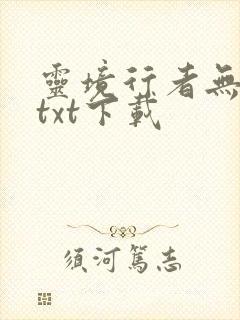 靈境行者無
txt下載
須河篤志